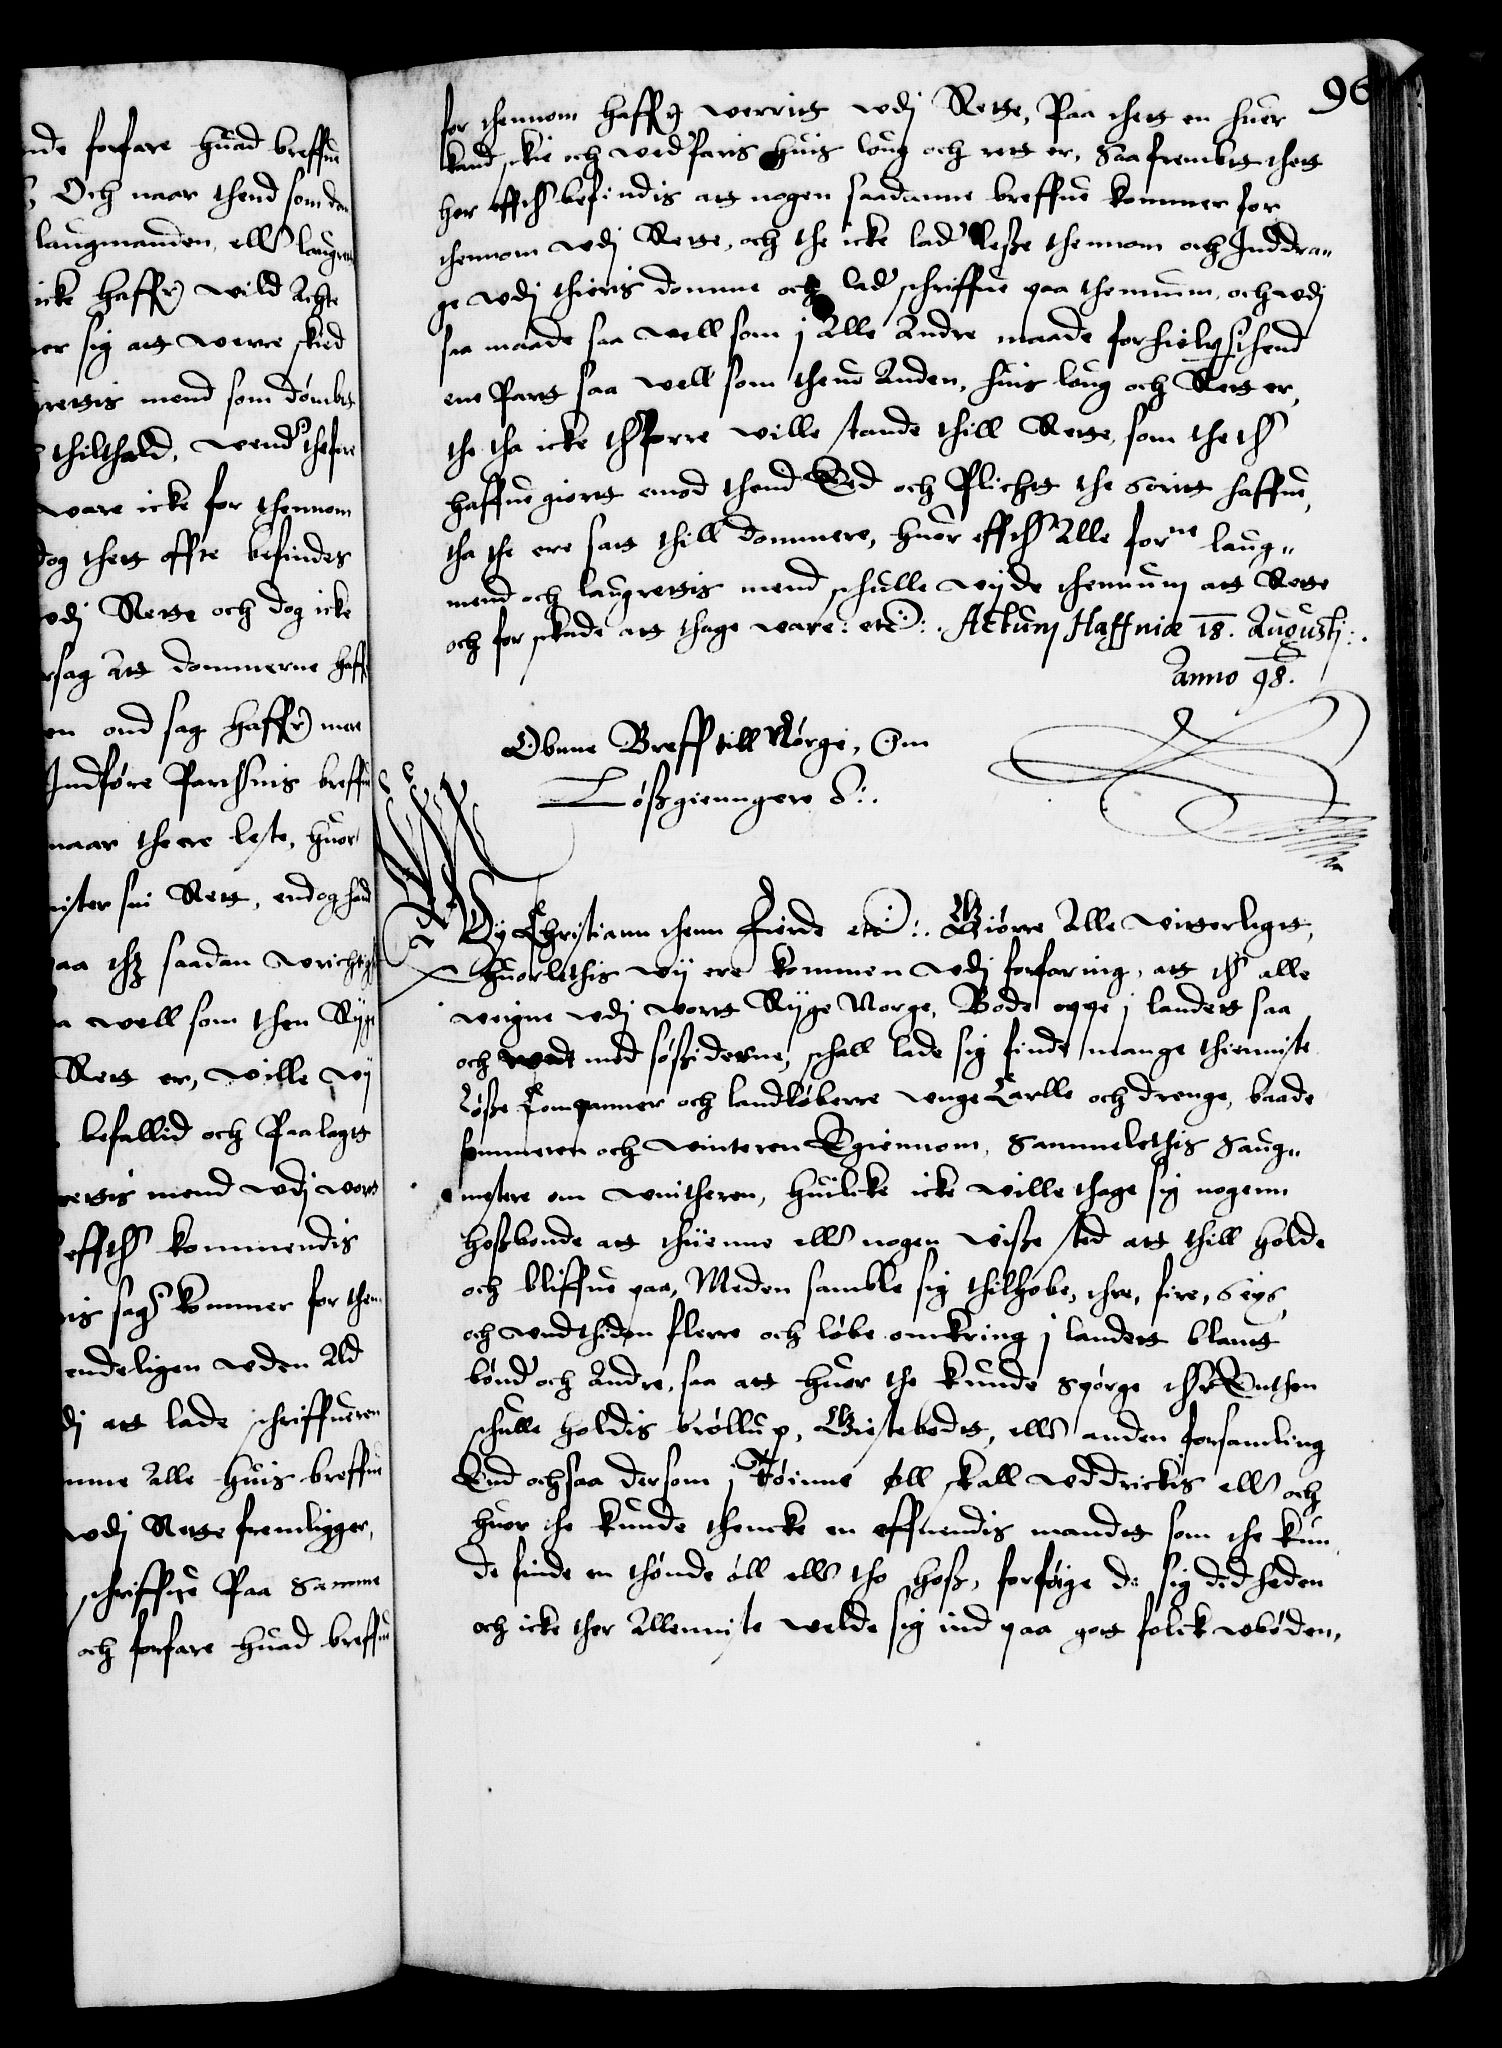 nde forfare huad breffue
Och naar thend som
laugmanden, eller laugrett
icke haffuer wild Achte
er sig att were skied
rettis mend som dömbt
thilthald, wende
ware icke for thennom
dog thett offte befindes
vdj Rette och dog icke
rsag Att dommerne haff
en ond sag haffuer mere
Indföre Partthis breffue
naar there leste, huor
mister sin Rett, endog hand
aa thz saadan wrichtig
a well som then Ryg
Rett er, wille wj
befallid och Paalagtt
rettis mend wdj wortt
effther kommendis
is sager kommer for them
endeligen vden Ald
dj att lade schriffueren
mme Alle huis breffue
wdj Rette fremligger,
schriffue Paa Samme
och forfare huad breffue
96
for thennom haffuer werrit wdj Rette, Paa thett en huer
kand skie och wedfaris huis loug och rett er, Saafrembt thett
her effther befindis att nogen saadanne breffue kommer for
thennom wdj Rette, och the icke lader leße thennom och Inddra„
ge wdj thieris domme och lade schriffue paa thennum, och wdj
saa maade saa well som j Alle Andre maade forhielper thend
ene Part saa well som thend Anden, huis loug och Rett er,
the tha icke therforre wille stande thill Rette, som the ther
haffue giortt emod thend Eed och Plichtt the Sorit haffue,
tha the ere satt thill dommere, huor effther Alle forne laug„
mend och laugrettis mend schulle wyde thennum att Rette
och for skade att thage ware: etc: Actum Haffniæ 18. Augustj:
Anno 98.
Obnne Breff till Nörge, Om
Lößgienngere
Wy Christiann thenn Fierde etc: Giörre Alle witterligtt,
Huorlethis wy ere kommen wdj forfaring, att ther alle
weigne wdj wortt Ryge Norge, Bode oppe j landett saa
och med sößiderne, schall lade sig finde mange thienniste
Löße Companner och landköberre vnge Carlle och drenge, baade
sommeren och winteren Egiennom, Sammelethis Saug„
mestere om wintheren, huilcke icke wille thage sig nogenn
hoßbonde att thiienne eller nogen wiße sted att thill holde
och bliffue paa, Meden samble sig thilhobe, thre, fire, Seys,
och vndthiden flerre och löbe omkring j landett blantt
bönder och Andre, saa att huor the kunde Spörge ther Enthen
schulle holdis bröllup, Giestebodt, eller anden forsamling
End ochsaa dersom j Köinne öll skall vddrickis eller och
huor the kunde thencke en effuendis mandtt som the kun
de finde en thönde öll eller tho hoß, forföige de sig did heden
och icke ther Allenniste welde sig ind paa gott folck vbóden,